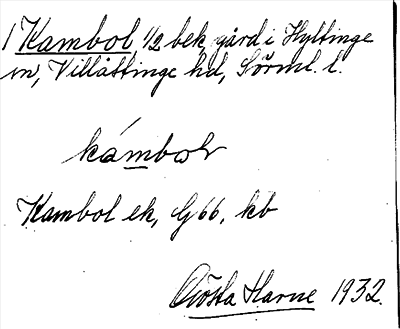 1 Kambol, 1/2 bek, gård i Hyltinge
sn, Villåttinge hd, Sörml. l.
kámbοl
Kambol ek, G 66, kb
Gösta Harne 1932.